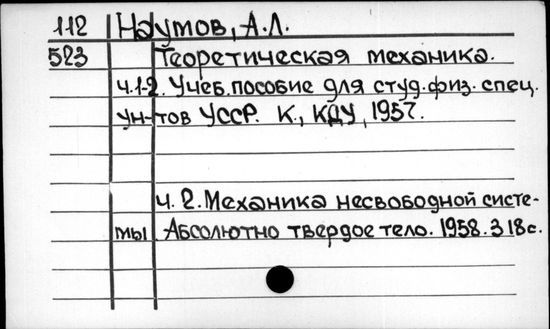 112 Наумов, А.Л.
523 Теоретическая механика.
ч.1-2. Учеб.пособие для студ.физ.спец.
ун-тов УССР. К., КДУ, 1957.
ч. 2. Механика несвободной систе-
мы. Абсолютно твердое тело. 1958. 318с.